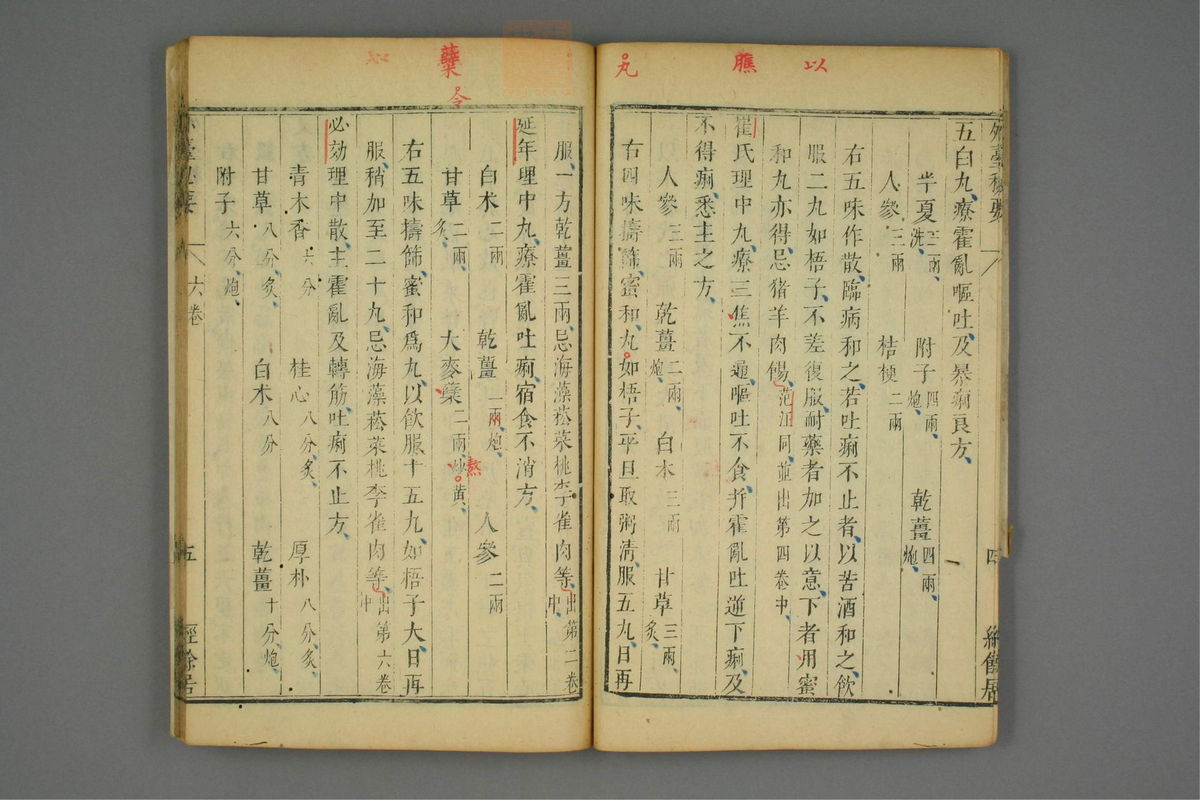 以
膲
丸
外臺秘要
四
經餘居
五白丸療霍亂嘔吐及暴痢良方
半夏三兩洗 附子四兩炮 乾薑四兩炮
人參三兩 桔梗二兩
右五味作散臨病和之若吐痢不止者以苦酒和之飲
服二丸如梧子不差復服耐藥者加之以意下者用蜜
和丸亦得忌猪羊肉餳范汪同並出第四卷中
崔氏理中丸療三焦不通嘔吐不食并霍亂吐逆下痢及
不得痢悉主之方
人參三兩 乾薑二兩炮 白朮三兩 甘草三兩炙
右四味擣篩蜜和丸如梧子平旦取粥清服五丸日再
糵
令
如
服一方乾薑三兩忌海藻菘菜桃李雀肉等出第二卷中
延年理中丸療霍亂吐痢宿食不消方
白朮二兩 乾薑一兩炮 人參二兩
甘草二兩炙 大麥糵二兩炒黄
熬
右五味擣篩蜜和爲丸以飲服十五丸如梧子大日再
服稍加至二十丸忌海藻菘菜桃李雀肉等出第六卷中
必効理中散主霍亂及轉筋吐痢不止方
青木香六分 桂心八分炙 厚朴八分炙
甘草八分炙 白朮八分 乾薑十分炮
附子六分炮
外臺秘要
六卷
五
經餘居